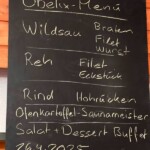 Obelix-Menü
Wildsau Braten
Filet
Wurst
Reh Filet
Eckstück
Rind Hohrücken
Ofenkartoffel-Saunameister
Salat + Dessert Buffet
26.4.2025